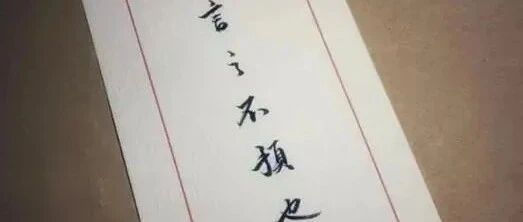 言之不預也